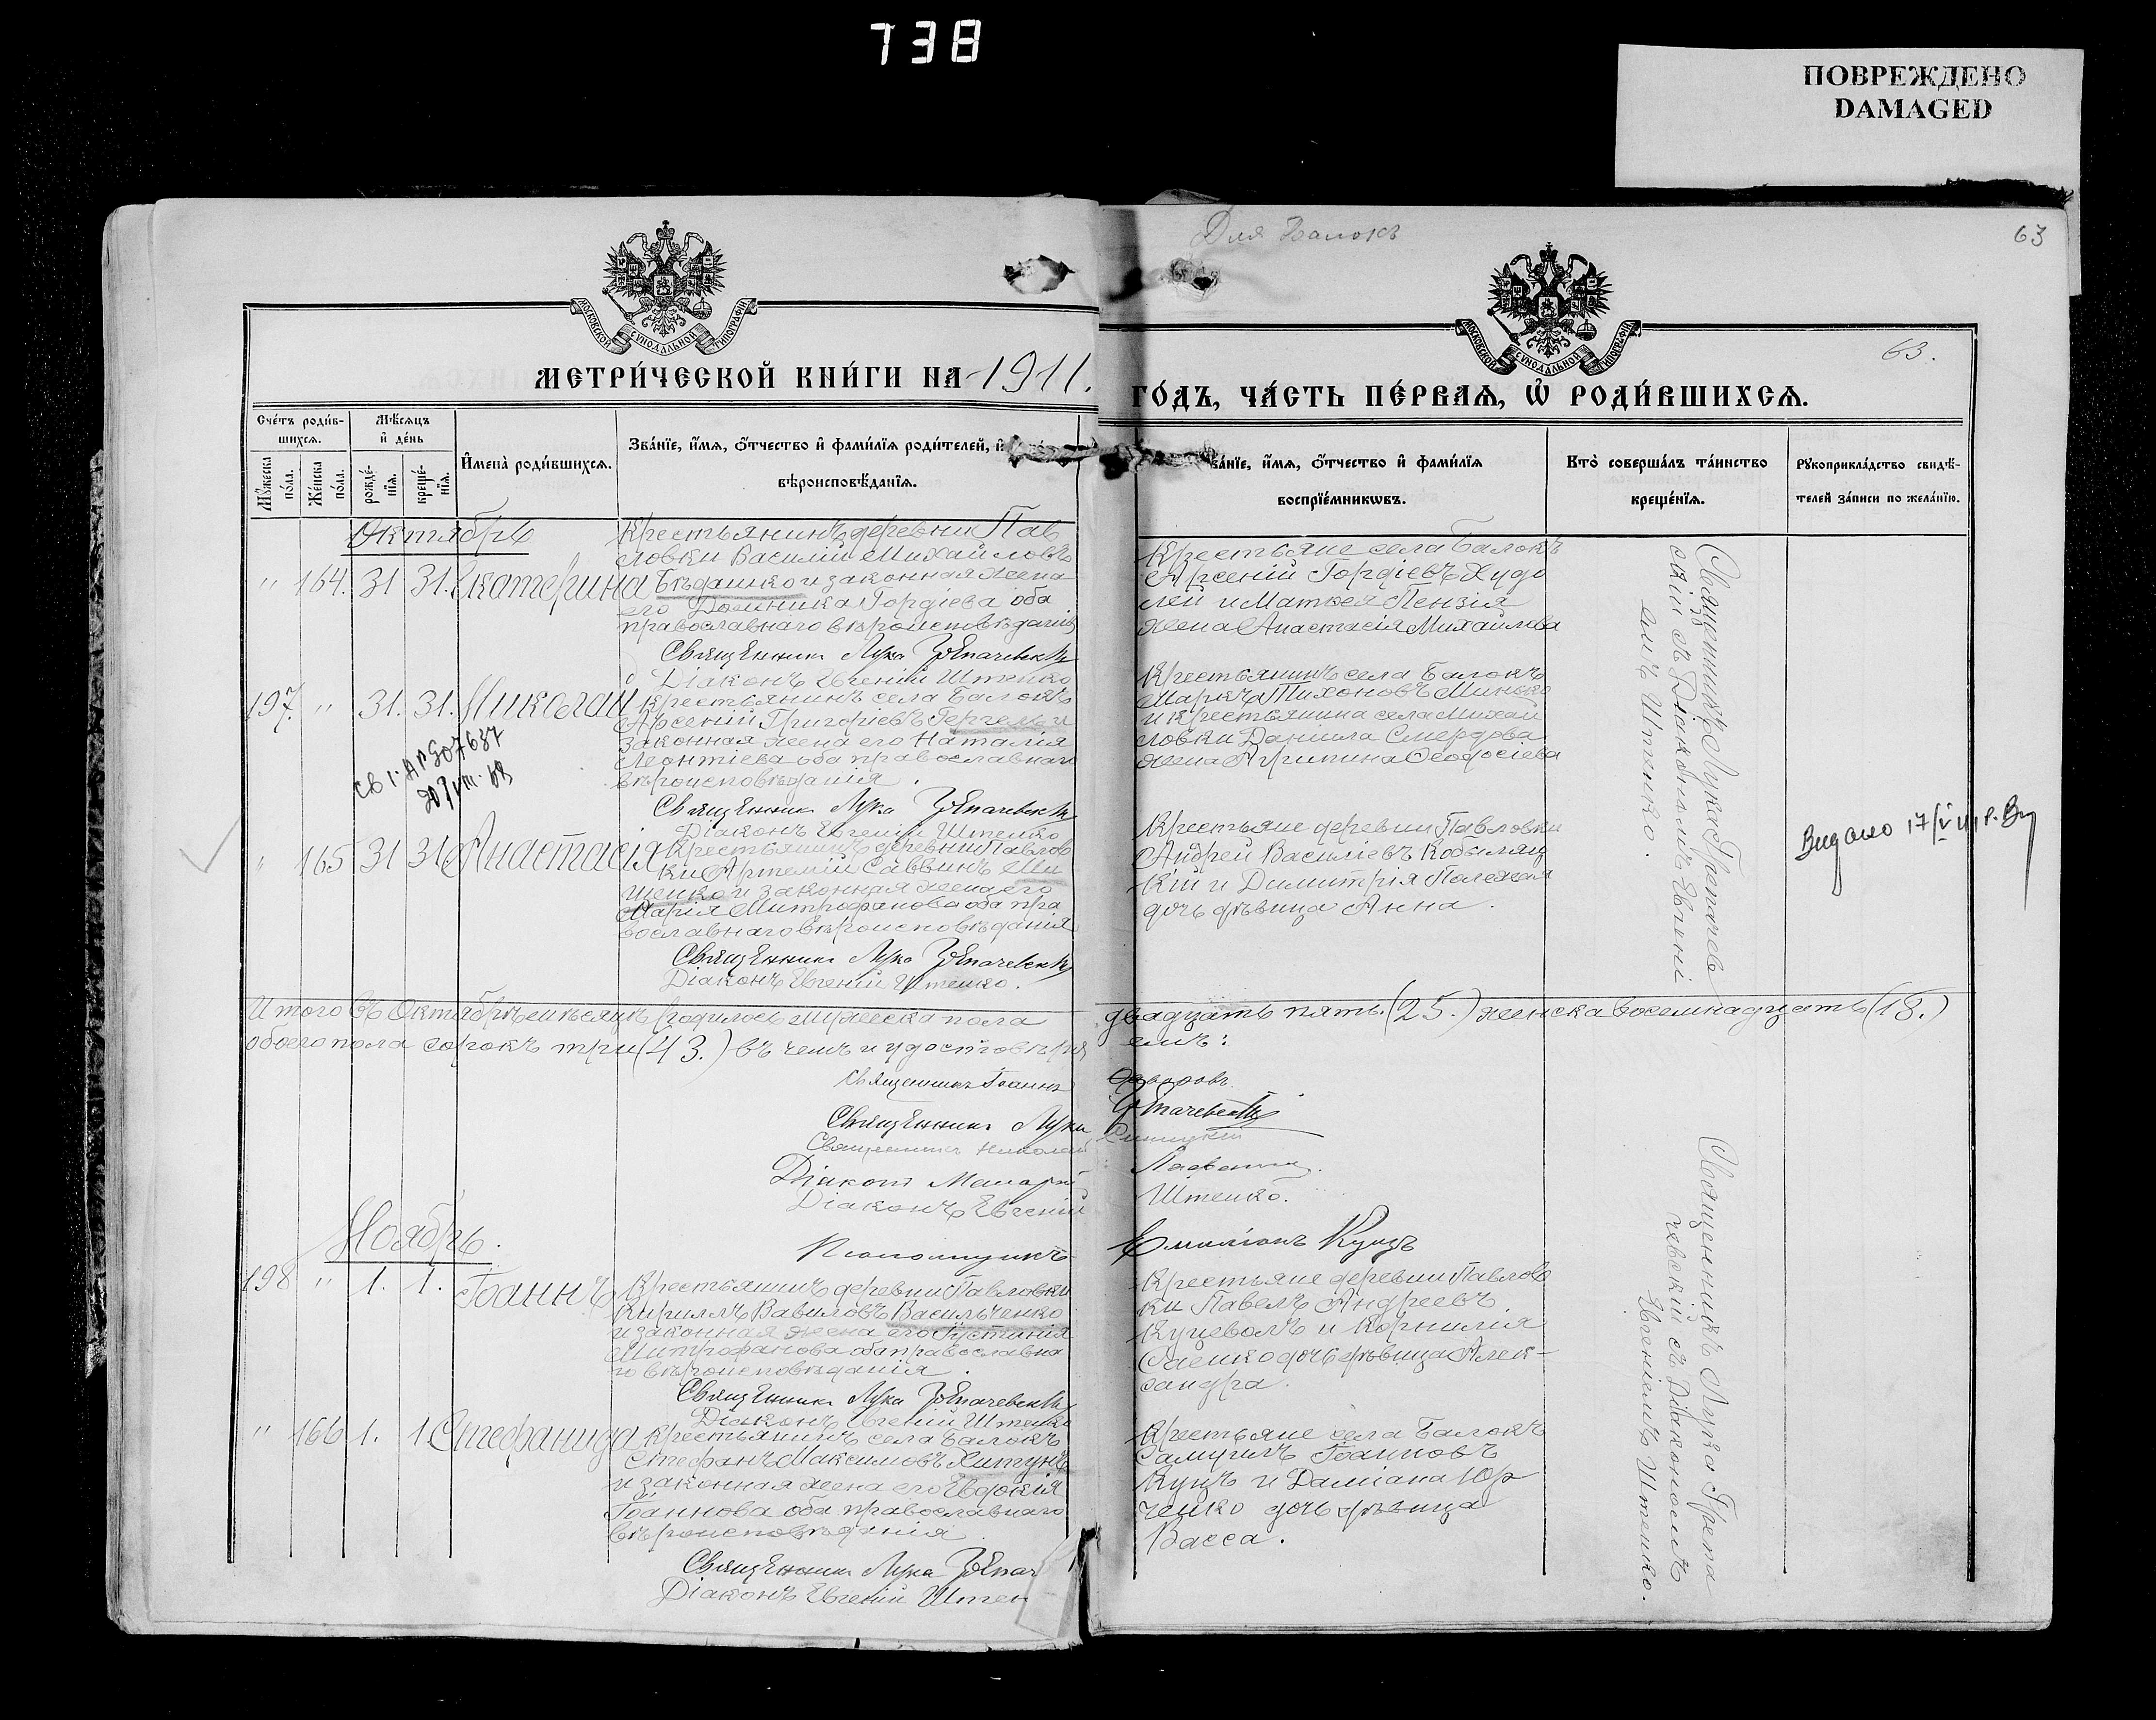 738
ПОВРЕЖДЕНО
DAMAGED
Для Балокъ
63
МОСКОВСКОЙ СѴНОДАЛЬНОЙ ТИПОГРАФІИ
МОСКОВСКОЙ СѴНОДАЛЬНОЙ ТИПОГРАФІИ
63.
МЕТРИ́ЧЕСКОЙ КНИ́ГИ НА 1911.
ГО́ДЪ, ЧА́СТЬ ПЕ́РВАѦ, Ѡ҆ РОДИ́ВШИХСѦ.
Сче́тъ роди́в-
шихсѧ.
Мѣ́сѧцъ
и҆ де́нь
Мꙋ́жеска по́ла.
Же́нска по́ла.
рожде́-
нїѧ.
креще́-
нїѧ.
И҆мена̀ роди́вшихсѧ.
Зва́нїе, и҆́мѧ, ѻ҆́тчество и҆ фами́лїѧ роди́телей, и҆
вѣроисповѣ́данїѧ.
ва́нїе, и҆́мѧ, ѻ҆́тчество и҆ фами́лїѧ
воспрїе́мникѡвъ.
Кто̀ соверша́лъ та́инство
креще́нїѧ.
Рꙋкоприкла́дство свидѣ́-
телей за́писи по жела́нїю.
Октябрь
" 164. 31 31. Екатерина
Крестьянинъ деревни Пав
ловки Василий Михайловъ
Бѣдашко и законная жена
его Домника Гордіева оба
православнаго вѣроисповѣданія
Священникъ Лука Грепачевскій
Діаконъ Евгеній Штепко
Крестьяне села Балокъ
Арсеній Гордіевъ Худо
лей и Матвея Пензія
жена Анастасія Михайлова
197. " 31. 31. Николай
Крестьянинъ села Балокъ
Арсеній Григоріевъ Гергель и
законная жена его Наталія
Леонтіева оба православнаго
вѣроисповѣданія.
Священникъ Лука Грепачевскій
Діаконъ Евгеній Штепко
Крестьянинъ села Балокъ
Маркъ Тихоновъ Минько
и крестьянина села Михай
ловки Даніила Смердова
жена Агрипина Ѳеодосіева
" 165 31 31 Анастасія
Крестьянинъ деревни Павлов
ки Артемій Саввинъ Ши
шенко и законная жена его
Марія Митрофанова оба пра
вославнаго вѣроисповѣданія
Священникъ Лука Грепачевскій
Діаконъ Евгеній Штепко.
Крестьяне деревни Павловки
Андрей Василіевъ Кобыляц
кій и Димитрія
дочь дѣвица Анна.
Священникъ Лука Грепачев
скій съ Діакономъ Евгені
емъ Штепко.
Видано 17/VIII
Итого въ Октябрѣ мѣсяцѣ родилось мужеска пола
двадцать пять (25.) женска восемнадцать (18.)
обоего пола сорокъ три (43.) въ чемъ и удостовѣря
емъ:
Священникъ Іоаннъ
Священникъ Лука Грепачевскій
Священникъ Николай
Діаконъ
Діаконъ Евгеній Штепко.
Псаломщикъ Емиліанъ Куцъ
Ноябрь.
198 " 1. 1. Іоаннъ
Крестьянинъ деревни Павловки
Кириллъ Вавиловъ Васильченко
и законная жена его Іустинія
Митрофанова оба православна
го вѣроисповѣданія.
Священникъ Лука Грепачевскій
Діаконъ Евгеній Штепко
Крестьяне деревни Павлов
ки Павелъ Андреевъ
Куцеволъ и Корнилія
Саенко дочь дѣвица Алек-
сандра.
" 166 1. 1. Стефанида
Крестьянинъ села Балокъ
Стефанъ Максимовъ Хитунъ
и законная жена его Евдокія
Іоаннова оба православнаго
вѣроисповѣданія.
Священникъ Лука Грепач
Діаконъ Евгеній Штеп
Крестьяне села Балокъ
Самуилъ Іоанновъ
Куцъ и Даміана Юр
ченко дочь дѣвица
Васса.
Священникъ Лука Грепа
чевскій съ Діакономъ
Евгеніемъ Штепко.